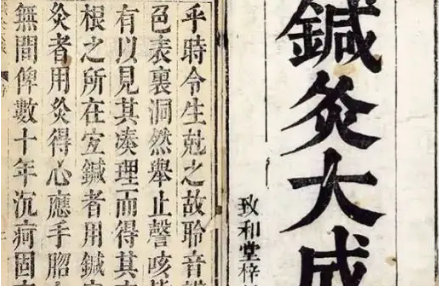 鍼灸大成
致和堂梓
乎時令生尅之故聆音
色表裏洞然舉止謦咳
有以見其湊理而得其
根之所在宐鍼者用鍼
灸者用灸得心應手脗
無間俾數十年沉痾固